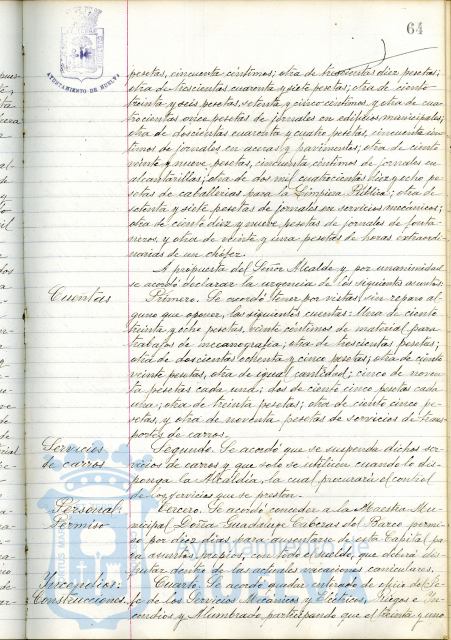 64
AYUNTAMIENTO DE HUELVA
pesetas, cincuenta céntimos; otra de trescientas diez pesetas;
otra de trescientas cuarenta y siete pesetas; otra de ciento
treinta y seis pesetas, setenta y cinco céntimos, y otra de cua-
trocientas once pesetas de jornales en edificios municipales;
otra de doscientas cuarenta y cuatro pesetas, cincuenta cén-
timos de jornales en aceras y pavimentos; otra de ciento
veinte y nueve pesetas, cincuenta céntimos de jornales en
alcantarillas; otra de dos mil cuatrocientas diez y ocho pe-
setas de caballerías para la Limpieza Pública; otra de
setenta y siete pesetas de jornales en servicios mecánicos;
otra de ciento diez y nueve pesetas de jornales de fonta-
neros, y otra de veinte y una pesetas de horas extraordi-
narias de un chófer.
A propuesta del Señor Alcalde y por unanimidad
se acordó declarar la urgencia de los siguientes asuntos:
Cuentas
Primero. Se acordó tener por vistas, sin reparo al-
guno que oponer, las siguientes cuentas: Una de ciento
treinta y ocho pesetas, veinte céntimos de material para
trabajos de mecanografía; otra de trescientas pesetas;
otra de doscientas ochenta y cinco pesetas; otra de ciento
veinte pesetas, otra de igual cantidad; cinco de noven-
ta pesetas cada una; dos de ciento cinco pesetas cada
una; otra de treinta pesetas; otra de ciento cinco pe-
setas, y otra de noventa pesetas de servicios de trans-
portes de carros.
Servicios
de carros
Segundo. Se acordó que se suspenda dichos ser-
vicios de carros y que solo se utilicen cuando lo dis-
ponga la Alcaldía, la cual procurará el control
de los servicios que se presten.
Personal:
Permiso
Tercero. Se acordó conceder a la Maestra Mu-
nicipal Doña Guadalupe Cabezas del Barco permi-
so por diez días para ausentarse de esta Capital pa-
ra asuntos propios, con todo el sueldo, que deberá dis-
frutar dentro de las actuales vacaciones caniculares.
Incendios:
Construcciones
Cuarto. Se acordó quedar enterado de oficio del Je-
fe de los Servicios Mecánicos y Eléctricos, Riegos e In-
cendios y Alumbrado, participando que el treinta y uno